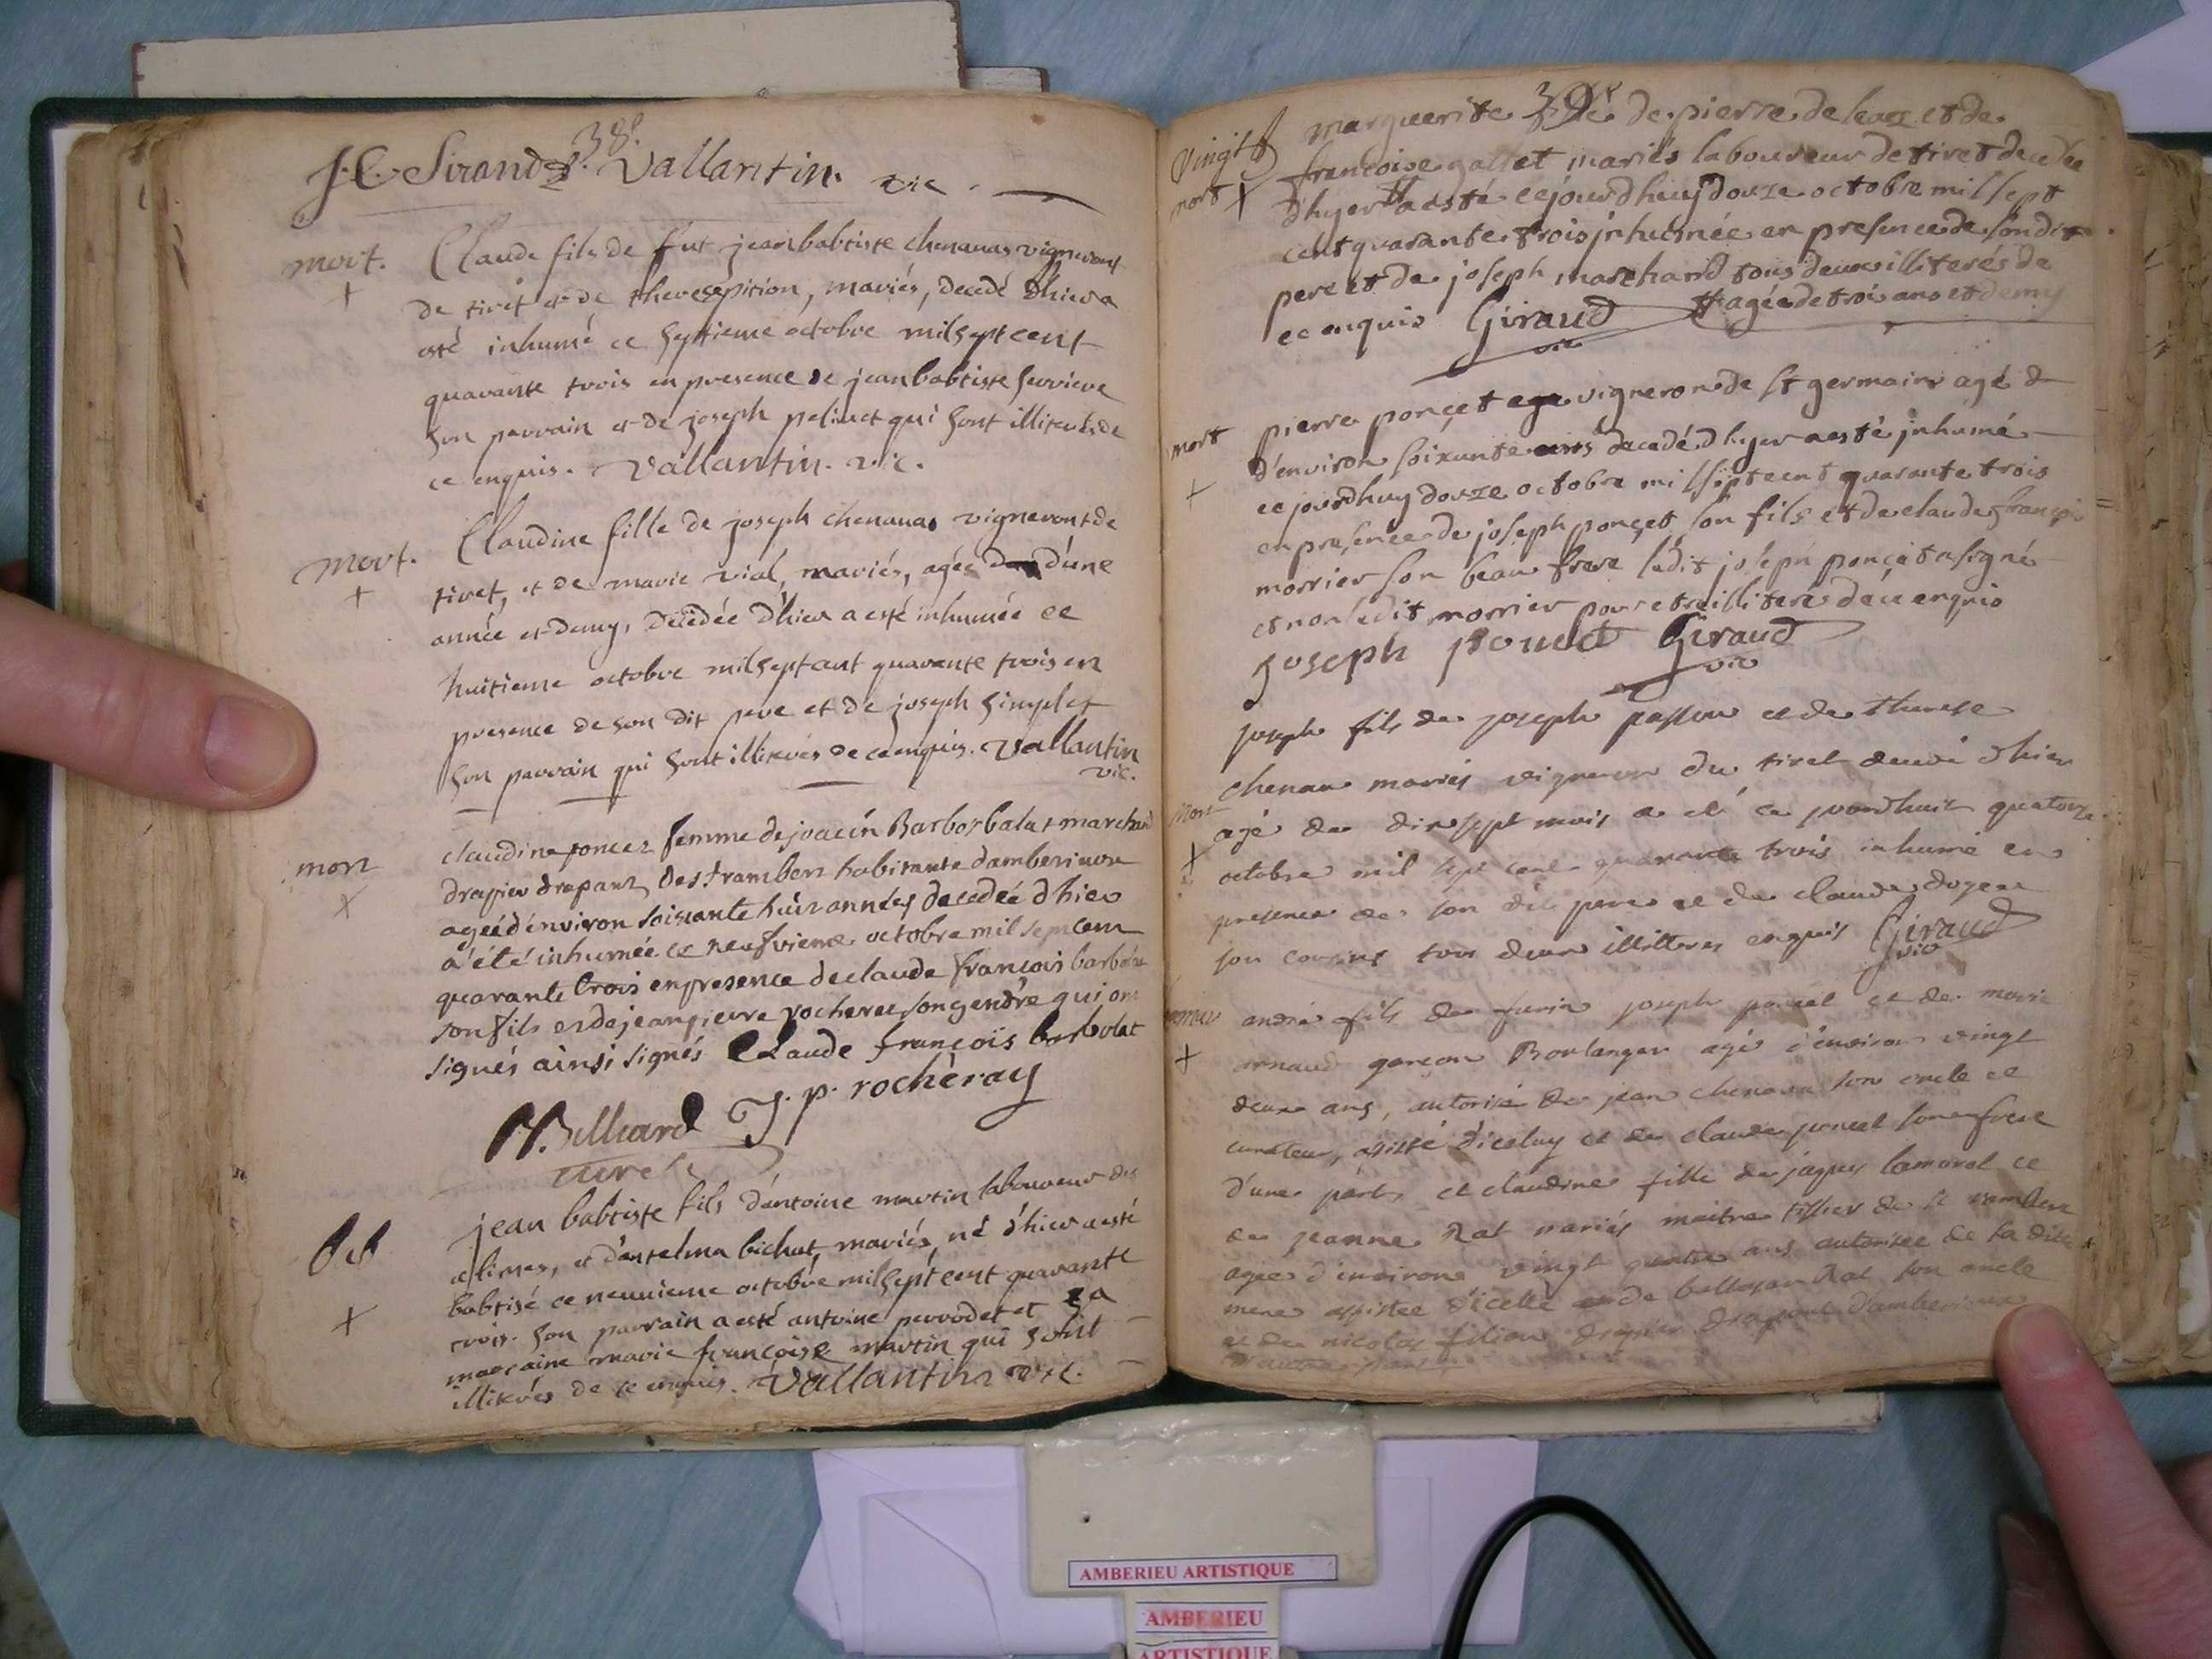 38e
J. C. Sirand Vallantin. vic.
mort. Claude fils de fut jean babtiste chenavas vigneront
de tiret et de therese pition, mariés, decedé d'hier a
esté inhumé ce septieme octobre mil sept cent
quarante trois en presence de jean babtiste
son parrain et de joseph qui sont illiterés de
ce enquis. Vallantin. vic.
mort. Claudine fille de joseph chenavas vigneront de
tiret, et de marie vial, mariés, agée d'une
année et demy, decedée d'hier a esté inhumée ce
huitieme octobre mil sept cent quarante trois en
presence de son dit pere et de joseph simplet
son parrain qui sont illiterés de ce enquis. Vallantin
vic.
mort claudine poncet femme de joacin Barbolat marchand
drapier drapant de st rambert habitante d'amberieux
agée d'environ soixante huit années decedée d'hier
a été inhumée ce neufvieme octobre mil sept cent
quarante trois en presence de claude françois barbolat
son fils et de jean pierre rocheray son gendre qui ont
signés ainsi signés Claude françois barbolat
Billiard J. p. rocheray
curé
jean babtiste fils d'antoine martin laboureur des
alimes, et d'antelma bichat, mariés, né d'hier a esté
babtisé ce neuvieme octobre mil sept cent quarante
trois. son parrain a esté antoine perrodet et sa
marraine marie françoise martin qui sont
illiterés de ce enquis. Vallantin vic.
39e
marguerite fille de pierre de et de
françoise gallet mariés laboureur de tiret decedée
mort d'hyer a esté cejourdhuy douze octobre mil sept
cent quarante trois inhumée en presence de son dit
pere et de joseph marchand tous deux illiterés de
ce enquis Giraud agée de trois ans et demy
vic
mort pierre ponçet vigneron de st germain agé
d'environ soixante ans decedé d'hyer a esté inhumé
ce jourdhuy douze octobre mil sept cent quarante trois
en presence de joseph ponçet son fils et de claude françois
morrier son beau frere ledit joseph ponçet a signé
et non ledit morrier pour etre illiteré de ce enquis
joseph poncet Giraud
vic
joseph fils de joseph et de therese
chenava mariés vigneron du tiret decedé d'hier
mort agé de dix sept mois a eté ce jourdhuit quatorze
octobre mil sept cent quarante trois inhumé en
presence de son dit pere et de claude
son cousin tous deux illitterés enquis Giraud
vic
andré fils de joseph poncet et de marie
arnaud garçon Boulanger agé d'environ vingt
deux ans, autorisé de jean chenava son oncle et
curateur, assisté d'iceluy et de claude poncet son frere
d'une part, et claudine fille de jaques lamorel et
de jeanne Rat mariés maitre tissier de st rambert
agée d'environ vingt quatre ans autorisée de sa dite
mere assistée d'icelle et de Rat son oncle
et de nicolas drapier drapant d'amberieux
d'autre part
AMBERIEU ARTISTIQUE
AMBERIEU
ARTISTIQUE